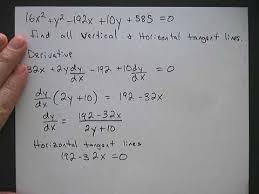 16x² + y² - 192x + 10y + 585 = 0
find all vertical & Horizontal tangent lines.
Derivative
32x + 2y dy/dx - 192 + 10 dy/dx = 0
dy/dx (2y + 10) = 192 - 32x
dy/dx = (192 - 32x)/(2y + 10)
Horizontal tangent lines
192 - 32x = 0